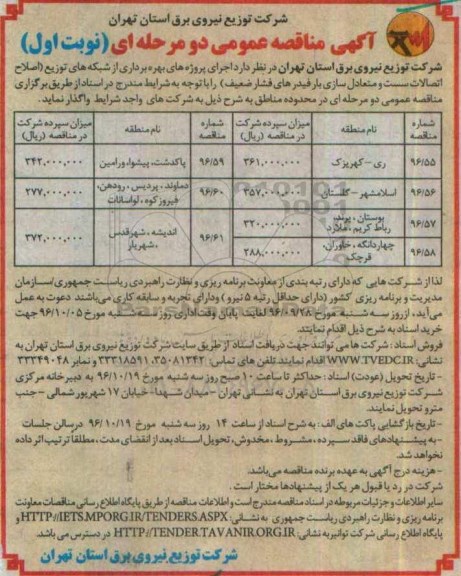 شرکت توزیع نیروی برق استان تهران
آگهی مناقصه عمومی دو مرحله ای (نوبت اول)
شرکت توزیع نیروی برق استان تهران در نظر دارد اجرای پروژه های بهره برداری از شبکه های توزیع (اصلاح
اتصالات سست و متعادل سازی بار فیدرهای فشار ضعیف) را با توجه به شرایط مندرج در اسناد از طریق برگزاری
مناقصه عمومی دو مرحله ای در محدوده مناطق به شرح ذیل به شرکت های واجد شرایط واگذار نماید.
شماره مناقصه نام منطقه میزان سپرده شرکت در مناقصه (ریال) شماره مناقصه نام منطقه میزان سپرده شرکت در مناقصه (ریال)
۹۶/۵۵ ری - کهریزک ۳۶۱,۰۰۰,۰۰۰ ۹۶/۵۹ پاکدشت، پیشوا، ورامین ۳۴۲,۰۰۰,۰۰۰
۹۶/۵۶ اسلامشهر - گلستان ۳۵۷,۰۰۰,۰۰۰ ۹۶/۶۰ دماوند، پردیس، رودهن، فیروزکوه، لواسانات ۲۷۷,۰۰۰,۰۰۰
۹۶/۵۷ بوستان، پرند، رباط کریم، ملارد ۳۲۰,۰۰۰,۰۰۰ ۹۶/۶۱ اندیشه، شهرقدس، شهریار ۳۷۲,۰۰۰,۰۰۰
۹۶/۵۸ چهاردانگه، خاوران، قرچک ۲۸۸,۰۰۰,۰۰۰
لذا از شرکت هایی که دارای رتبه بندی از معاونت برنامه ریزی و نظارت راهبردی ریاست جمهوری/سازمان
مدیریت و برنامه ریزی کشور (دارای حداقل رتبه ۵ نیرو) و دارای تجربه و سابقه کاری می باشند دعوت به عمل
می آید، از روز سه شنبه مورخ ۹۶/۰۹/۲۸ لغایت پایان وقت اداری روز سه شنبه مورخ ۹۶/۱۰/۰۵ جهت
خرید اسناد به شرح ذیل اقدام نمایند.
فروش اسناد: شرکت ها می توانند جهت دریافت اسناد از طریق سایت شرکت توزیع نیروی برق استان تهران به
نشانی: WWW.TVEDC.IR اقدام نمایند تلفن های تماس: ۳۵۰۸۱۳۴۲، ۳۳۳۱۸۵۹۱ و نمابر ۳۳۳۴۹۰۴۸
- تاریخ تحویل (عودت) اسناد: حداکثر تا ساعت ۱۰ صبح روز سه شنبه مورخ ۹۶/۱۰/۱۹ به دبیرخانه مرکزی
شرکت توزیع نیروی برق استان تهران به نشانی تهران - میدان شهدا - خیابان ۱۷ شهریور شمالی - جنب
مترو تحویل نمایند.
- تاریخ بازگشایی پاکت های الف: به شرح اسناد از ساعت ۱۴ روز سه شنبه مورخ ۹۶/۱۰/۱۹ در سالن جلسات
- به پیشنهادهای فاقد سپرده، مشروط، مخدوش، تحویل اسناد بعد از انقضای مدت، مطلقا ترتیب اثر داده
نخواهد شد.
- هزینه درج آگهی به عهده برنده مناقصه می باشد.
شرکت در رد یا قبول هر یک از پیشنهادها مختار است.
سایر اطلاعات و جزئیات مربوطه در اسناد مناقصه مندرج است و اطلاعات مناقصه از طریق پایگاه اطلاع رسانی مناقصات معاونت
برنامه ریزی و نظارت راهبردی ریاست جمهوری به نشانی: HTTP//IETS.MPORG.IR/TENDERS.ASPX و
پایگاه اطلاع رسانی شرکت توانیر به نشانی: HTTP//TENDER.TAVANIR.ORG.IR در دسترس می باشد.
شرکت توزیع نیروی برق استان تهران